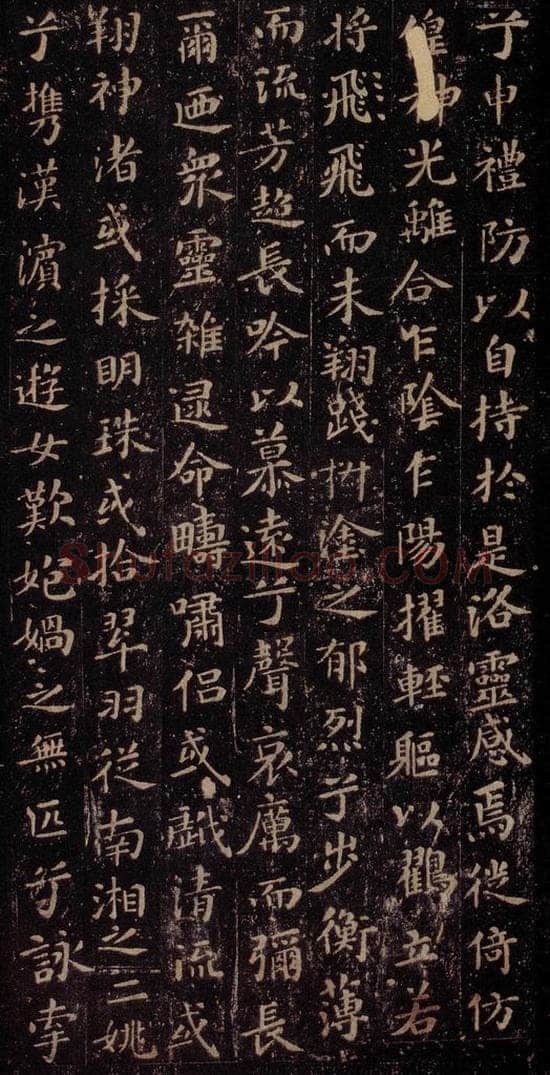 兮申禮防以自持於是洛靈感焉徙倚仿
偟神光離合乍陰乍陽擢輕軀以鶴立若
將飛飛而未翔踐椒塗之郁烈兮步衡薄
而流芳超長吟以慕遠兮聲哀厲而彌長
爾迺衆靈雜遝命疇嘯侣或戲清流或
翔神渚或採明珠或拾翠羽從南湘之二姚
兮携漢濱之遊女歎匏媧之無匹兮詠牽
Shufaziliao.COM